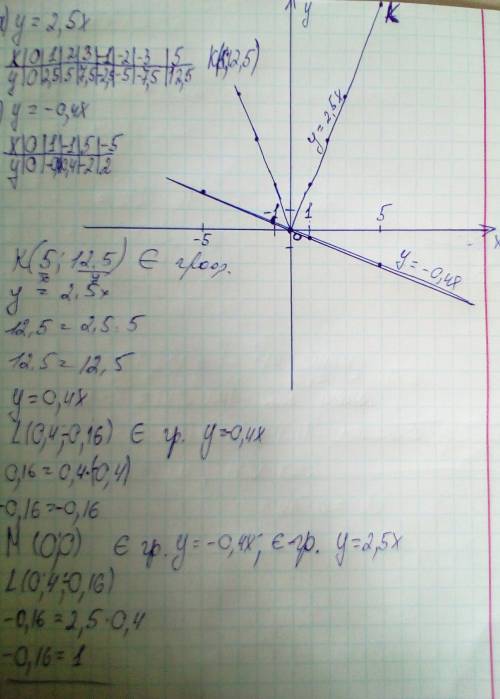 а) y = 2,5x
x|0|1|2|3|-1|-2|-3|5
y|0|2,5|5|7,5|-2,5|-5|-7,5|12,5
K(5;12,5)
) y = -0,4x
x|0|1|-1|5|-5
y|0|-0,4|0,4|-2|2
y
K
y=2,5x
-1
1
-5
0
5
x
y=-0,4x
K(5; 12,5) Є граф.
x y
y = 2,5x
12,5 = 2,5·5
12,5 = 12,5
y = 0,4x
L(0,4;-0,16) Є гр. y=0,4x
0,16 = 0,4·(0,4)
-0,16=-0,16
N (0;0) Є гр. y=-0,4x; Є гр. y=2,5x
L(0,4;-0,16)
-0,16 = 2,5·0,4
-0,16= 1